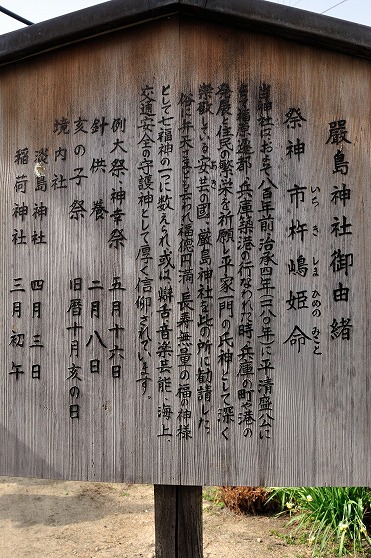 嚴島神社御由緒
祭神 市杵嶋姫命
いち き しま ひめの みこと
当神社は、およそ八百年前治承四年(一一八〇年)に平清盛公に
よる福原遷都、兵庫築港の行なわれた時、兵庫の町や港の
発展と住民の繁栄を祈願し、平家一門の氏神として深く
崇敬している安芸の國、厳島神社を此の所に勧請した。
俗に弁天さまと云われ福徳円満、長寿無量の福の神様
として七福神の一に数えられ、或は、辯舌音楽芸能、海上、
交通安全の守護神として厚く信仰されています。
例大祭神幸祭 五月十六日
針供養 二月八日
亥の子祭 旧暦十月亥の日
境内社
淡島神社 四月三日
稲荷神社 三月初午